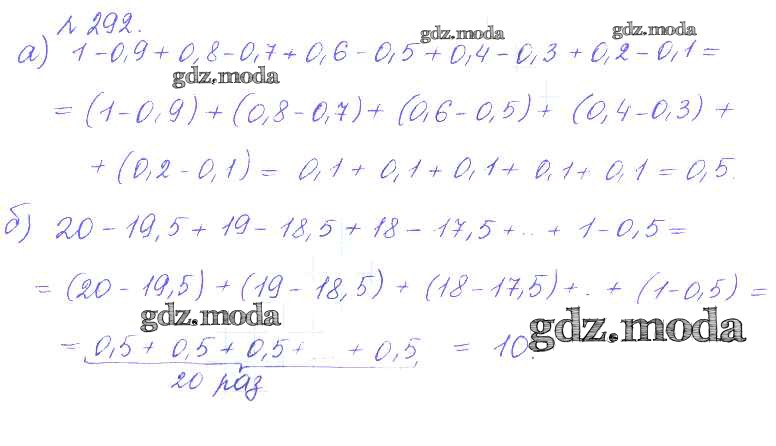 № 292.
gdz.moda
gdz.moda
а) 1-0,9+0,8-0,7+0,6-0,5+0,4-0,3+0,2-0,1=
gdz.moda
= (1-0,9)+(0,8-0,7)+(0,6-0,5)+(0,4-0,3)+
+(0,2-0,1)= 0,1+0,1+0,1+0,1+0,1=0,5.
б) 20-19,5+19-18,5+18-17,5+..+1-0,5=
= (20-19,5)+(19-18,5)+(18-17,5)+..+(1-0,5)=
gdz.moda
gdz.moda
= 0,5+0,5+0,5+...+0,5 = 10.
20 раз